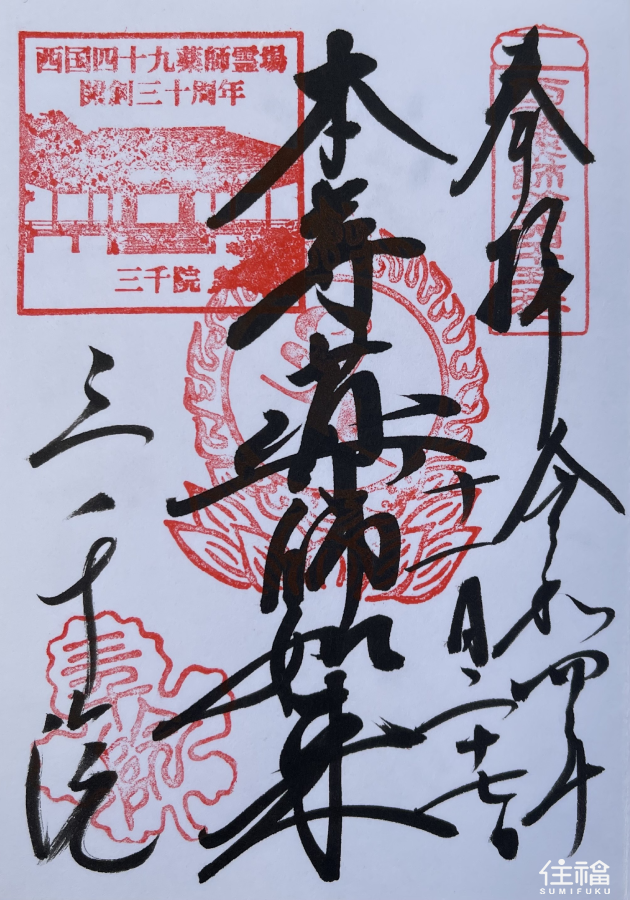 奉拝
令和四年
十一月二十七日
本尊薬師如来
三千院
西国四十九薬師霊場
開創三十周年
三千院
住福
SUMIFUKU